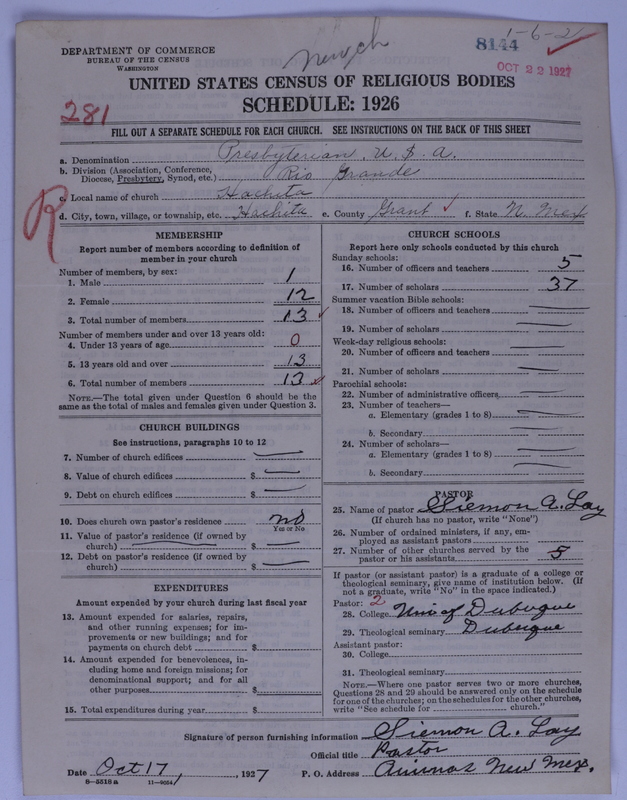 DEPARTMENT OF COMMERCE
BUREAU OF THE CENSUS
WASHINGTON
New ch
8144
1-6-2
OCT 22 1927
UNITED STATES CENSUS OF RELIGIOUS BODIES
SCHEDULE: 1926
281
FILL OUT A SEPARATE SCHEDULE FOR EACH CHURCH. SEE INSTRUCTIONS ON THE BACK OF THIS SHEET
a. Denomination Presbyterian, U.S.A.
b. Division (Association, Conference, Diocese, Presbytery, Synod, etc.) Rio Grande
c. Local name of church Hachita
d. City, town, village, or township, etc. Hachita e. County Grant f. State N. Mex
R
MEMBERSHIP
Report number of members according to definition of
member in your church
Number of members, by sex:
1. Male 1
2. Female 12
3. Total number of members 13
Number of members under and over 13 years old:
4. Under 13 years of age 0
5. 13 years old and over 13
6. Total number of members 13
NOTE.—The total given under Question 6 should be the
same as the total of males and females given under Question 3.
CHURCH BUILDINGS
See instructions, paragraphs 10 to 12
7. Number of church edifices
8. Value of church edifices $
9. Debt on church edifices $
10. Does church own pastor's residence no
Yes or No
11. Value of pastor's residence (if owned by
church) $
12. Debt on pastor's residence (if owned by
church) $
EXPENDITURES
Amount expended by your church during last fiscal year
13. Amount expended for salaries, repairs,
and other running expenses; for im-
provements or new buildings; and for
payments on church debt $
14. Amount expended for benevolences, in-
cluding home and foreign missions; for
denominational support; and for all
other purposes $
15. Total expenditures during year $
CHURCH SCHOOLS
Report here only schools conducted by this church
Sunday schools:
16. Number of officers and teachers 5
17. Number of scholars 37
Summer vacation Bible schools:
18. Number of officers and teachers
19. Number of scholars
Week-day religious schools:
20. Number of officers and teachers
21. Number of scholars
Parochial schools:
22. Number of administrative officers
23. Number of teachers—
a. Elementary (grades 1 to 8)
b. Secondary
24. Number of scholars—
a. Elementary (grades 1 to 8)
b. Secondary
PASTOR
25. Name of pastor Siemon A. Lay
(If church has no pastor, write "None")
26. Number of ordained ministers, if any, em-
ployed as assistant pastors
27. Number of other churches served by the
pastor or his assistants 5
If pastor (or assistant pastor) is a graduate of a college or
theological seminary, give name of institution below. (If
not a graduate, write "No" in the space indicated.)
Pastor: 2
28. College Uni of Dubuque
29. Theological seminary Dubuque
Assistant pastor:
30. College
31. Theological seminary
NOTE.—Where one pastor serves two or more churches,
Questions 28 and 29 should be answered only on the schedule
for one of the churches; on the schedules for the other churches,
write "See schedule for church."
Signature of person furnishing information Siemon A. Lay
Official title Pastor
Date Oct 17, 1927 P. O. Address Animas New Mex.
8—5518a 11—9064